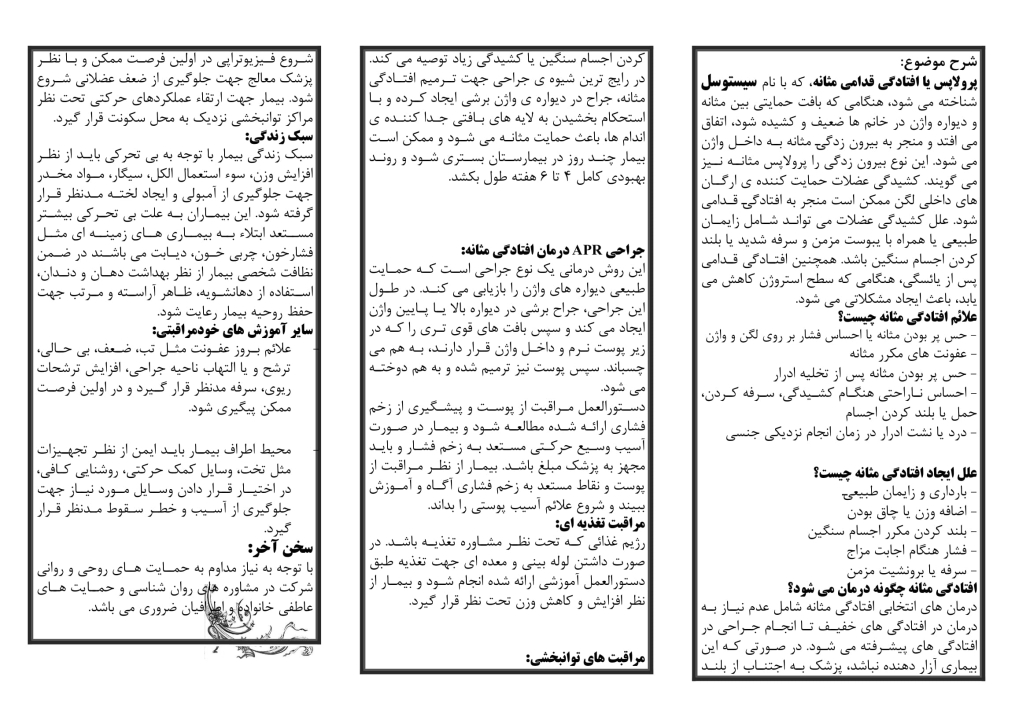 شرح موضوع:
پرولاپس یا افتادگی قدامی مثانه، که با نام سیستوسل
شناخته می شود، هنگامی که بافت حمایتی بین مثانه
و دیواره واژن در خانم ها ضعیف و کشیده شود، اتفاق
می افتد و منجر به بیرون زدگی مثانه به داخل واژن
می شود. این نوع بیرون زدگی را پرولاپس مثانه نیز
می گویند. کشیدگی عضلات حمایت کننده ی ارگان
های داخلی لگن ممکن است منجر به افتادگی قدامی
شود. علل کشیدگی عضلات می تواند شامل زایمان
طبیعی یا همراه با یبوست مزمن و سرفه شدید یا بلند
کردن اجسام سنگین باشد. همچنین افتادگی قدامی
پس از یائسگی، هنگامی که سطح استروژن کاهش می
یابد، باعث ایجاد مشکلاتی می شود.
علائم افتادگی مثانه چیست؟
- حس پر بودن مثانه یا احساس فشار بر روی لگن و واژن
- عفونت های مکرر مثانه
- حس پر بودن مثانه پس از تخلیه ادرار
- احساس ناراحتی هنگام کشیدگی، سرفه کردن،
حمل یا بلند کردن اجسام
- درد یا نشت ادرار در زمان انجام نزدیکی جنسی
علل ایجاد افتادگی مثانه چیست؟
- بارداری و زایمان طبیعی
- اضافه وزن یا چاق بودن
- بلند کردن مکرر اجسام سنگین
- فشار هنگام اجابت مزاج
- سرفه یا برونشیت مزمن
افتادگی مثانه چگونه درمان می شود؟
درمان های انتخابی افتادگی مثانه شامل عدم نیاز به
درمان در افتادگی های خفیف تا انجام جراحی در
افتادگی های پیشرفته می شود. در صورتی که این
بیماری آزار دهنده نباشد، پزشک به اجتناب از بلند
کردن اجسام سنگین یا کشیدگی زیاد توصیه می کند.
در رایج ترین شیوه ی جراحی جهت ترمیم افتادگی
مثانه، جراح در دیواره ی واژن برشی ایجاد کرده و با
استحکام بخشیدن به لایه های بافتی جدا کننده ی
اندام ها، باعث حمایت مثانه می شود و ممکن است
بیمار چند روز در بیمارستان بستری شود و روند
بهبودی کامل ۴ تا ۶ هفته طول بکشد.
جراحی APR درمان افتادگی مثانه:
این روش درمانی یک نوع جراحی است که حمایت
طبیعی دیواره های واژن را بازیابی می کند. در طول
این جراحی، جراح برشی در دیواره بالا یا پایین واژن
ایجاد می کند و سپس بافت های قوی تری را که در
زیر پوست نرم و داخل واژن قرار دارند، به هم می
چسباند. سپس پوست نیز ترمیم شده و به هم دوخته
می شود.
دستورالعمل مراقبت از پوست و پیشگیری از زخم
فشاری ارائه شده مطالعه شود و بیمار در صورت
آسیب وسیع حرکتی مستعد به زخم فشار و باید
مجهز به پزشک مبلغ باشد. بیمار از نظر مراقبت از
پوست و نقاط مستعد به زخم فشاری آگاه و آموزش
ببیند و شروع علائم آسیب پوستی را بداند.
مراقبت تغذیه ای:
رژیم غذائی که تحت نظر مشاوره تغذیه باشد. در
صورت داشتن لوله بینی و معده ای جهت تغذیه طبق
دستورالعمل آموزشی ارائه شده انجام شود و بیمار از
نظر افزایش و کاهش وزن تحت نظر قرار گیرد.
مراقبت های توانبخشی:
شروع فیزیوتراپی در اولین فرصت ممکن و با نظر
پزشک معالج جهت جلوگیری از ضعف عضلانی شروع
شود. بیمار جهت ارتقاء عملکردهای حرکتی تحت نظر
مراکز توانبخشی نزدیک به محل سکونت قرار گیرد.
سبک زندگی:
سبک زندگی بیمار با توجه به بی تحرکی باید از نظر
افزایش وزن، سوء استعمال الکل، سیگار، مواد مخدر
جهت جلوگیری از آمبولی و ایجاد لخته مدنظر قرار
گرفته شود. این بیماران به علت بی تحرکی بیشتر
مستعد ابتلاء به بیماری های زمینه ای مثل
فشارخون، چربی خون، دیابت می باشند در ضمن
نظافت شخصی بیمار از نظر بهداشت دهان و دندان،
استفاده از دهانشویه، ظاهر آراسته و مرتب جهت
حفظ روحیه بیمار رعایت شود.
سایر آموزش های خودمراقبتی:
- علائم بروز عفونت مثل تب، ضعف، بی حالی،
ترشح و یا التهاب ناحیه جراحی، افزایش ترشحات
ریوی، سرفه مدنظر قرار گیرد و در اولین فرصت
ممکن پیگیری شود.
- محیط اطراف بیمار باید ایمن از نظر تجهیزات
مثل تخت، وسایل کمک حرکتی، روشنایی کافی،
در اختیار قرار دادن وسایل مورد نیاز جهت
جلوگیری از آسیب و خطر سقوط مدنظر قرار
گیرد.
سخن آخر:
با توجه به نیاز مداوم به حمایت های روحی و روانی
شرکت در مشاوره های روان شناسی و حمایت های
عاطفی خانواده و اطرافیان ضروری می باشد.